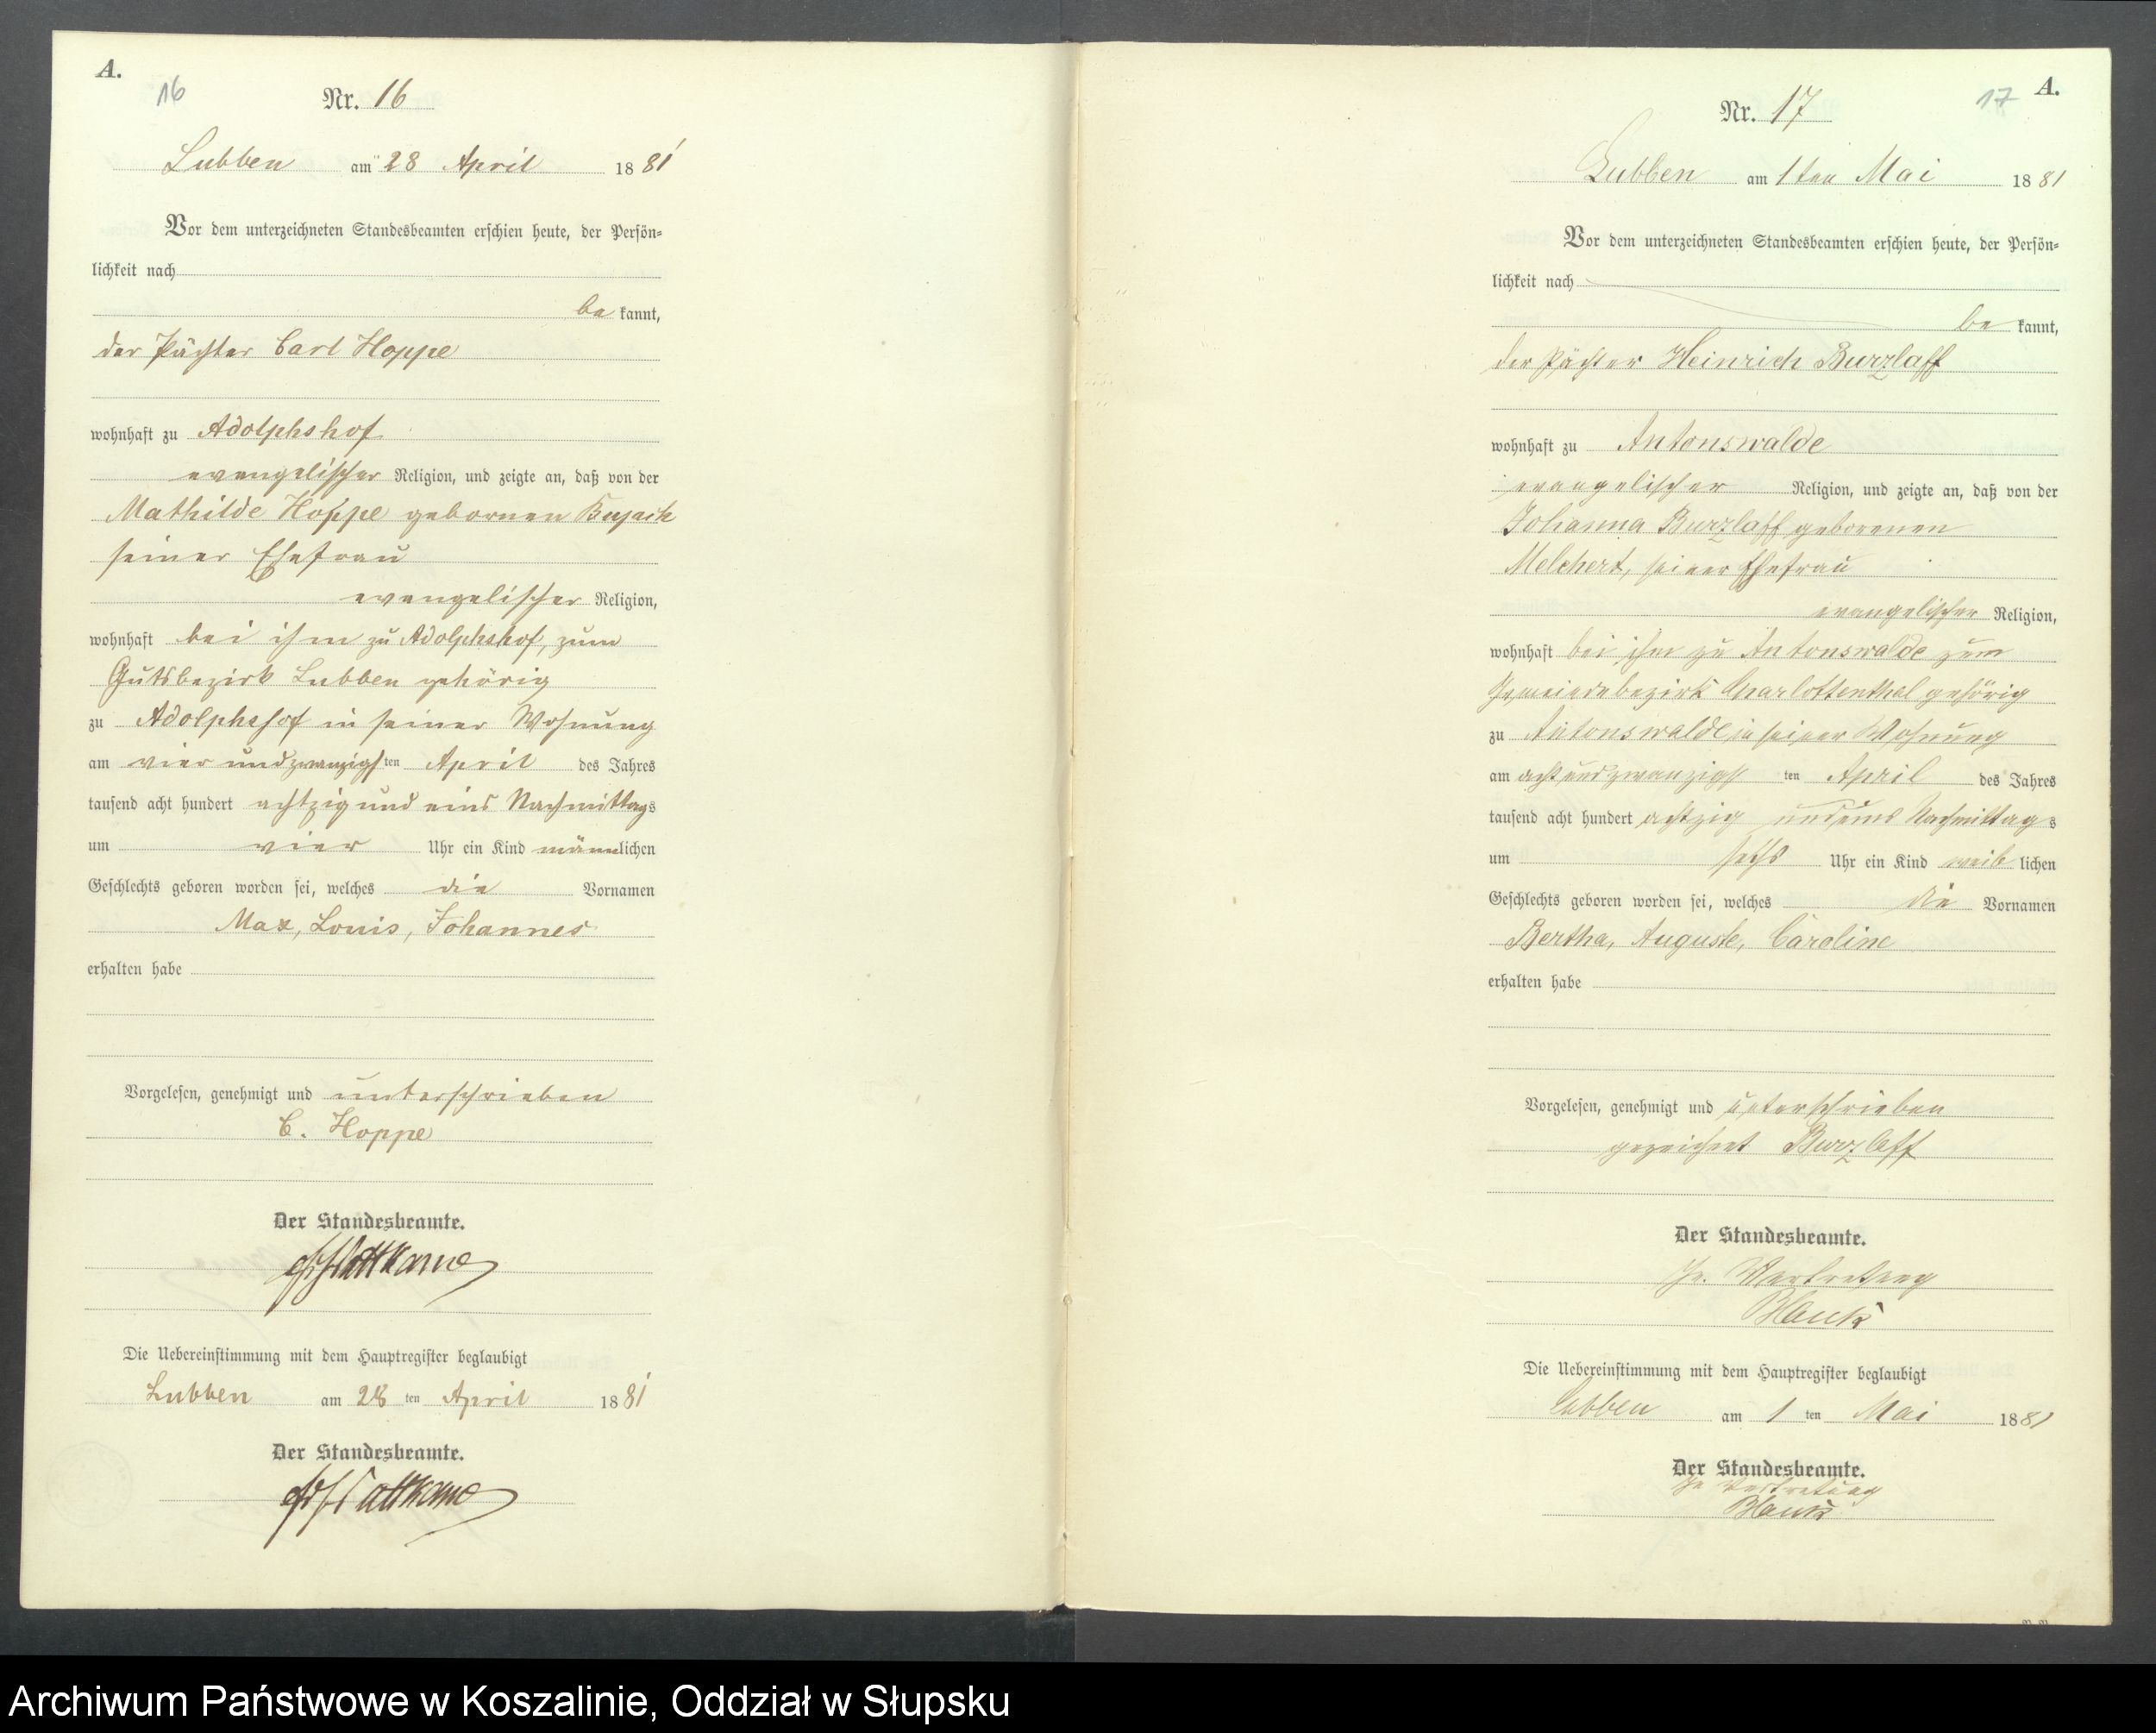 A.
16
Nr. 16
Lubben am 28 April 1881
Vor dem unterzeichneten Standesbeamten erschien heute, der Persön=
lichkeit nach
be kannt,
der Pächter Carl Hoppe
wohnhaft zu Adolphshof
evangelischer Religion, und zeigte an, daß von der
Mathilde Hoppe gebornen
seiner Ehefrau
evangelischer Religion,
wohnhaft bei ihm zu Adolphshof, zum
Gutsbezirk Lubben gehörig
zu Adolphshof in seiner Wohnung
am vier und zwanzigsten April des Jahres
tausend acht hundert achtzig und eins Nachmittags
um vier Uhr ein Kind männlichen
Geschlechts geboren worden sei, welches die Vornamen
Max, Louis, Johannes
erhalten habe
Vorgelesen, genehmigt und unterschrieben
C. Hoppe
Der Standesbeamte.
Die Uebereinstimmung mit dem Hauptregister beglaubigt
Lubben am 28 ten April 1881
Der Standesbeamte.
A.
17
Nr. 17
Lubben am 1ten Mai 1881
Vor dem unterzeichneten Standesbeamten erschien heute, der Persön=
lichkeit nach
be kannt,
der Pächter Heinrich Burzlaff
wohnhaft zu Antonswalde
evangelischer Religion, und zeigte an, daß von der
Johanna Burzlaff geborenen
Melchert, seiner Ehefrau
evangelischer Religion,
wohnhaft bei ihm zu Antonswalde zum
Gemeindebezirk Charlottenthal gehörig
zu Antonswalde in seiner Wohnung
am acht und zwanzigsten April des Jahres
tausend acht hundert achtzig und eins Nachmittags
um sechs Uhr ein Kind weiblichen
Geschlechts geboren worden sei, welches die Vornamen
Bertha, Auguste, Caroline
erhalten habe
Vorgelesen, genehmigt und unterschrieben
gezeichnet Burzlaff
Der Standesbeamte.
In Vertretung
Die Uebereinstimmung mit dem Hauptregister beglaubigt
Lubben am 1 ten Mai 1881
Der Standesbeamte.
In Vertretung
Archiwum Państwowe w Koszalinie, Oddział w Słupsku